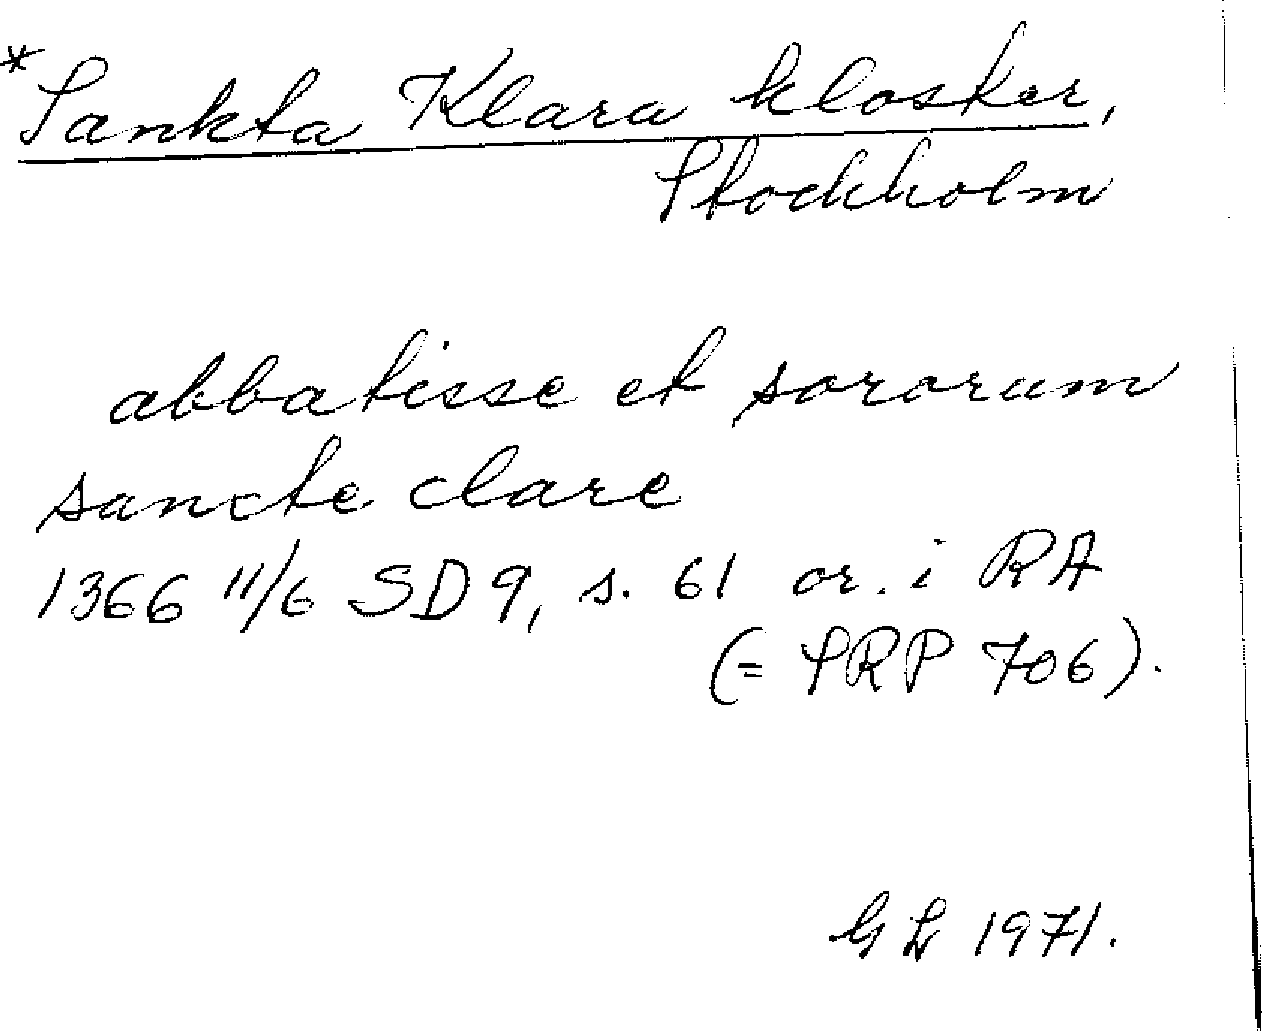 *Sankta Klara kloster,
Stockholm
abbatisse et sororum
sancte clare
1366 11/6 SD 9, s. 61 or. i RA
(= SRP 706).
GL 1971.